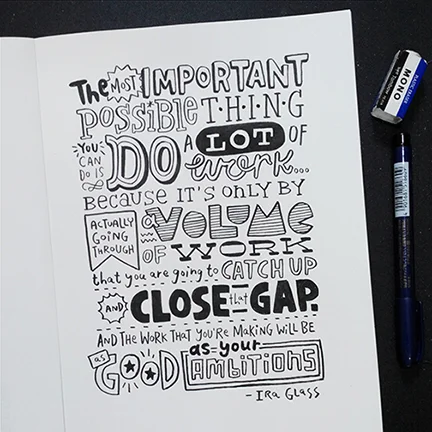 The MOST IMPORTANT
POSSiBLE T·H·I·N·G
YOU CAN DO IS DO A LOT OF
work...
BECAUSE IT'S ONLY BY
ACTUALLY GOING THROUGH a VOLUME
OF WORK
that you are going to CATCH UP
AND CLOSE that GAP.
AND THE WORK THAT YOU'RE MAKING WILL BE
as GOOD as your AMBiTiONS
- IRA GLASS
MONO